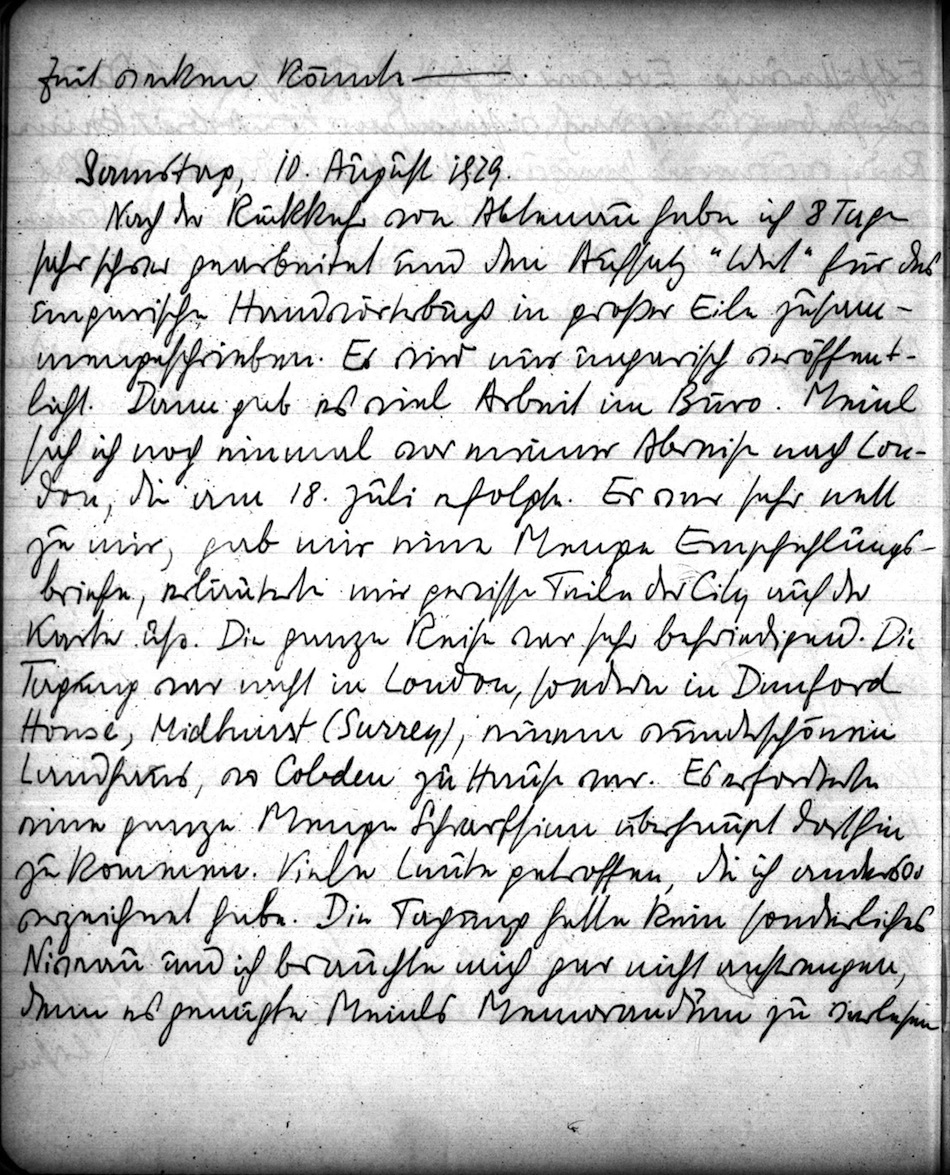 Zeit denken könnte ——
Samstag, 10. August 1929.
Nach der Rückkehr von Ablenau habe ich 8 Tage
sehr schwer gearbeitet und den Aufsatz "Wert" für das
ungarische Handwörterbuch in großer Eile zusam-
mengeschrieben. Er wird nur ungarisch veröffent-
licht. Dann gab es viel Arbeit im Büro. Meinl
sah ich noch einmal vor meiner Abreise nach Lon-
don, die am 18. Juli erfolgte. Er war sehr nett
zu mir, gab mir eine Menge Empfehlungs-
briefe, erläuterte mir gewisse Teile der City auf der
Karte usw. Die ganze Reise war sehr befriedigend. Die
Tagung war nicht in London, sondern in Dunford
House, Midhurst (Surrey), einem wunderschönen
Landhaus, wo Cobden zu Hause war. Es erforderte
eine ganze Menge Scharfsinn überhaupt dorthin
zu kommen. Viele Leute getroffen, die ich anderswo
verzeichnet habe. Die Tagung hatte kein sonderliches
Niveau und ich brauchte mich gar nicht anstrengen,
denn es genügte Meinls Memorandum zu verlesen